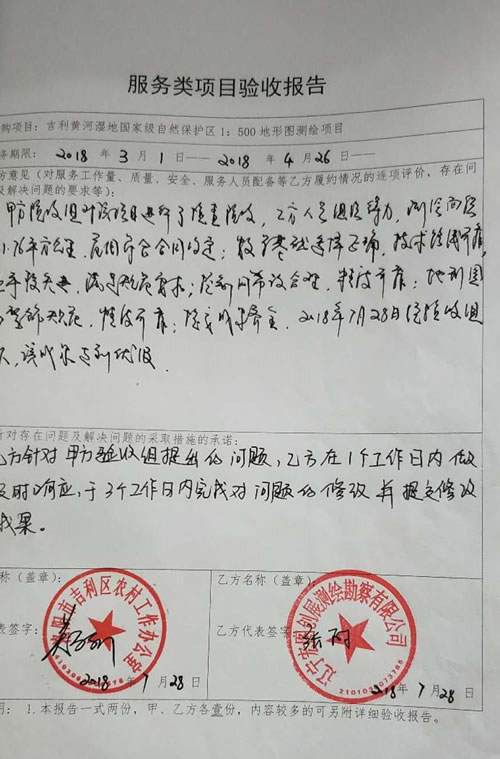 服务类项目验收报告
购项目：吉利黄河湿地国家级自然保护区1：500地形图测绘项目
务期限：2018 年 3 月 1 日——2018 年 4 月 26 日——
方意见（对服务工作量、质量、安全、服务人员配备等乙方履约情况的逐项评价，存在问
及解决问题的要求等）：
甲方验收组对该项目进行了检查验收，乙方人员组织得力，测绘面积
1.76平方公里，范围符合合同约定；数学基础选择正确，技术路线可靠，
手段先进，满足规范要求；控制网布设合理，精度可靠；地形图
规范，精度可靠；2018年7月28日经验收组
针对存在问题及解决问题的采取措施的承诺：
乙方针对甲方验收组提出的问题，乙方在1个工作日内做
及时响应，于3个工作日内完成对问题的修改并提交修改
成果。
称（盖章）：
乙方名称（盖章）：
洛阳市吉利区农村工作办公室
表签字：
乙方代表签字：
2018 7 月 28 日
2018 年 7 月 28 日
2101037073765
明：1.本报告一式两份，甲、乙方各壹份，内容较多的可另附详细验收报告。